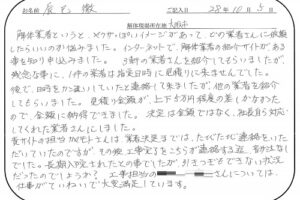 お名前 辰己 徹 ご記入日 28年10月5日
解体現場所在地 大阪市
解体業者というと、メクサい、ぽいイメージがあって、どの業者さんに依頼
したらいいのか悩みました。インターネットで、解体業者の紹介サイトがある
事を知り申込みました。3軒の業者さんを紹介してもらいましたが、
残念な事に、1件の業者は指定日時に見積りに来ませんでした。
後で、日時をかん違いしていたと連絡して来ましたが、他の業者を紹介して
もらいました。見積り金額が、上下5万円程度の差しかなかった
ので、金額に納得できました。決定は金額ではなく、社長自ら対応
してくれた業者さんにしました。
貴サイトの担当 さんは業者決定までは、たびたびご連絡をいた
だいていたのですが、その後工事完了をこちらが連絡する迄、音がなし
でした。長期入院されたとの事でしたが、引きつぎもできない状況
だったのでしょうか？ 工事担当の さんについては、
仕事がていねいで大変満足しています。